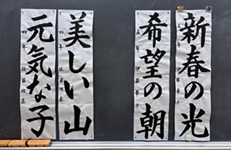 新春の光
希望の朝
美しい山
元気な子